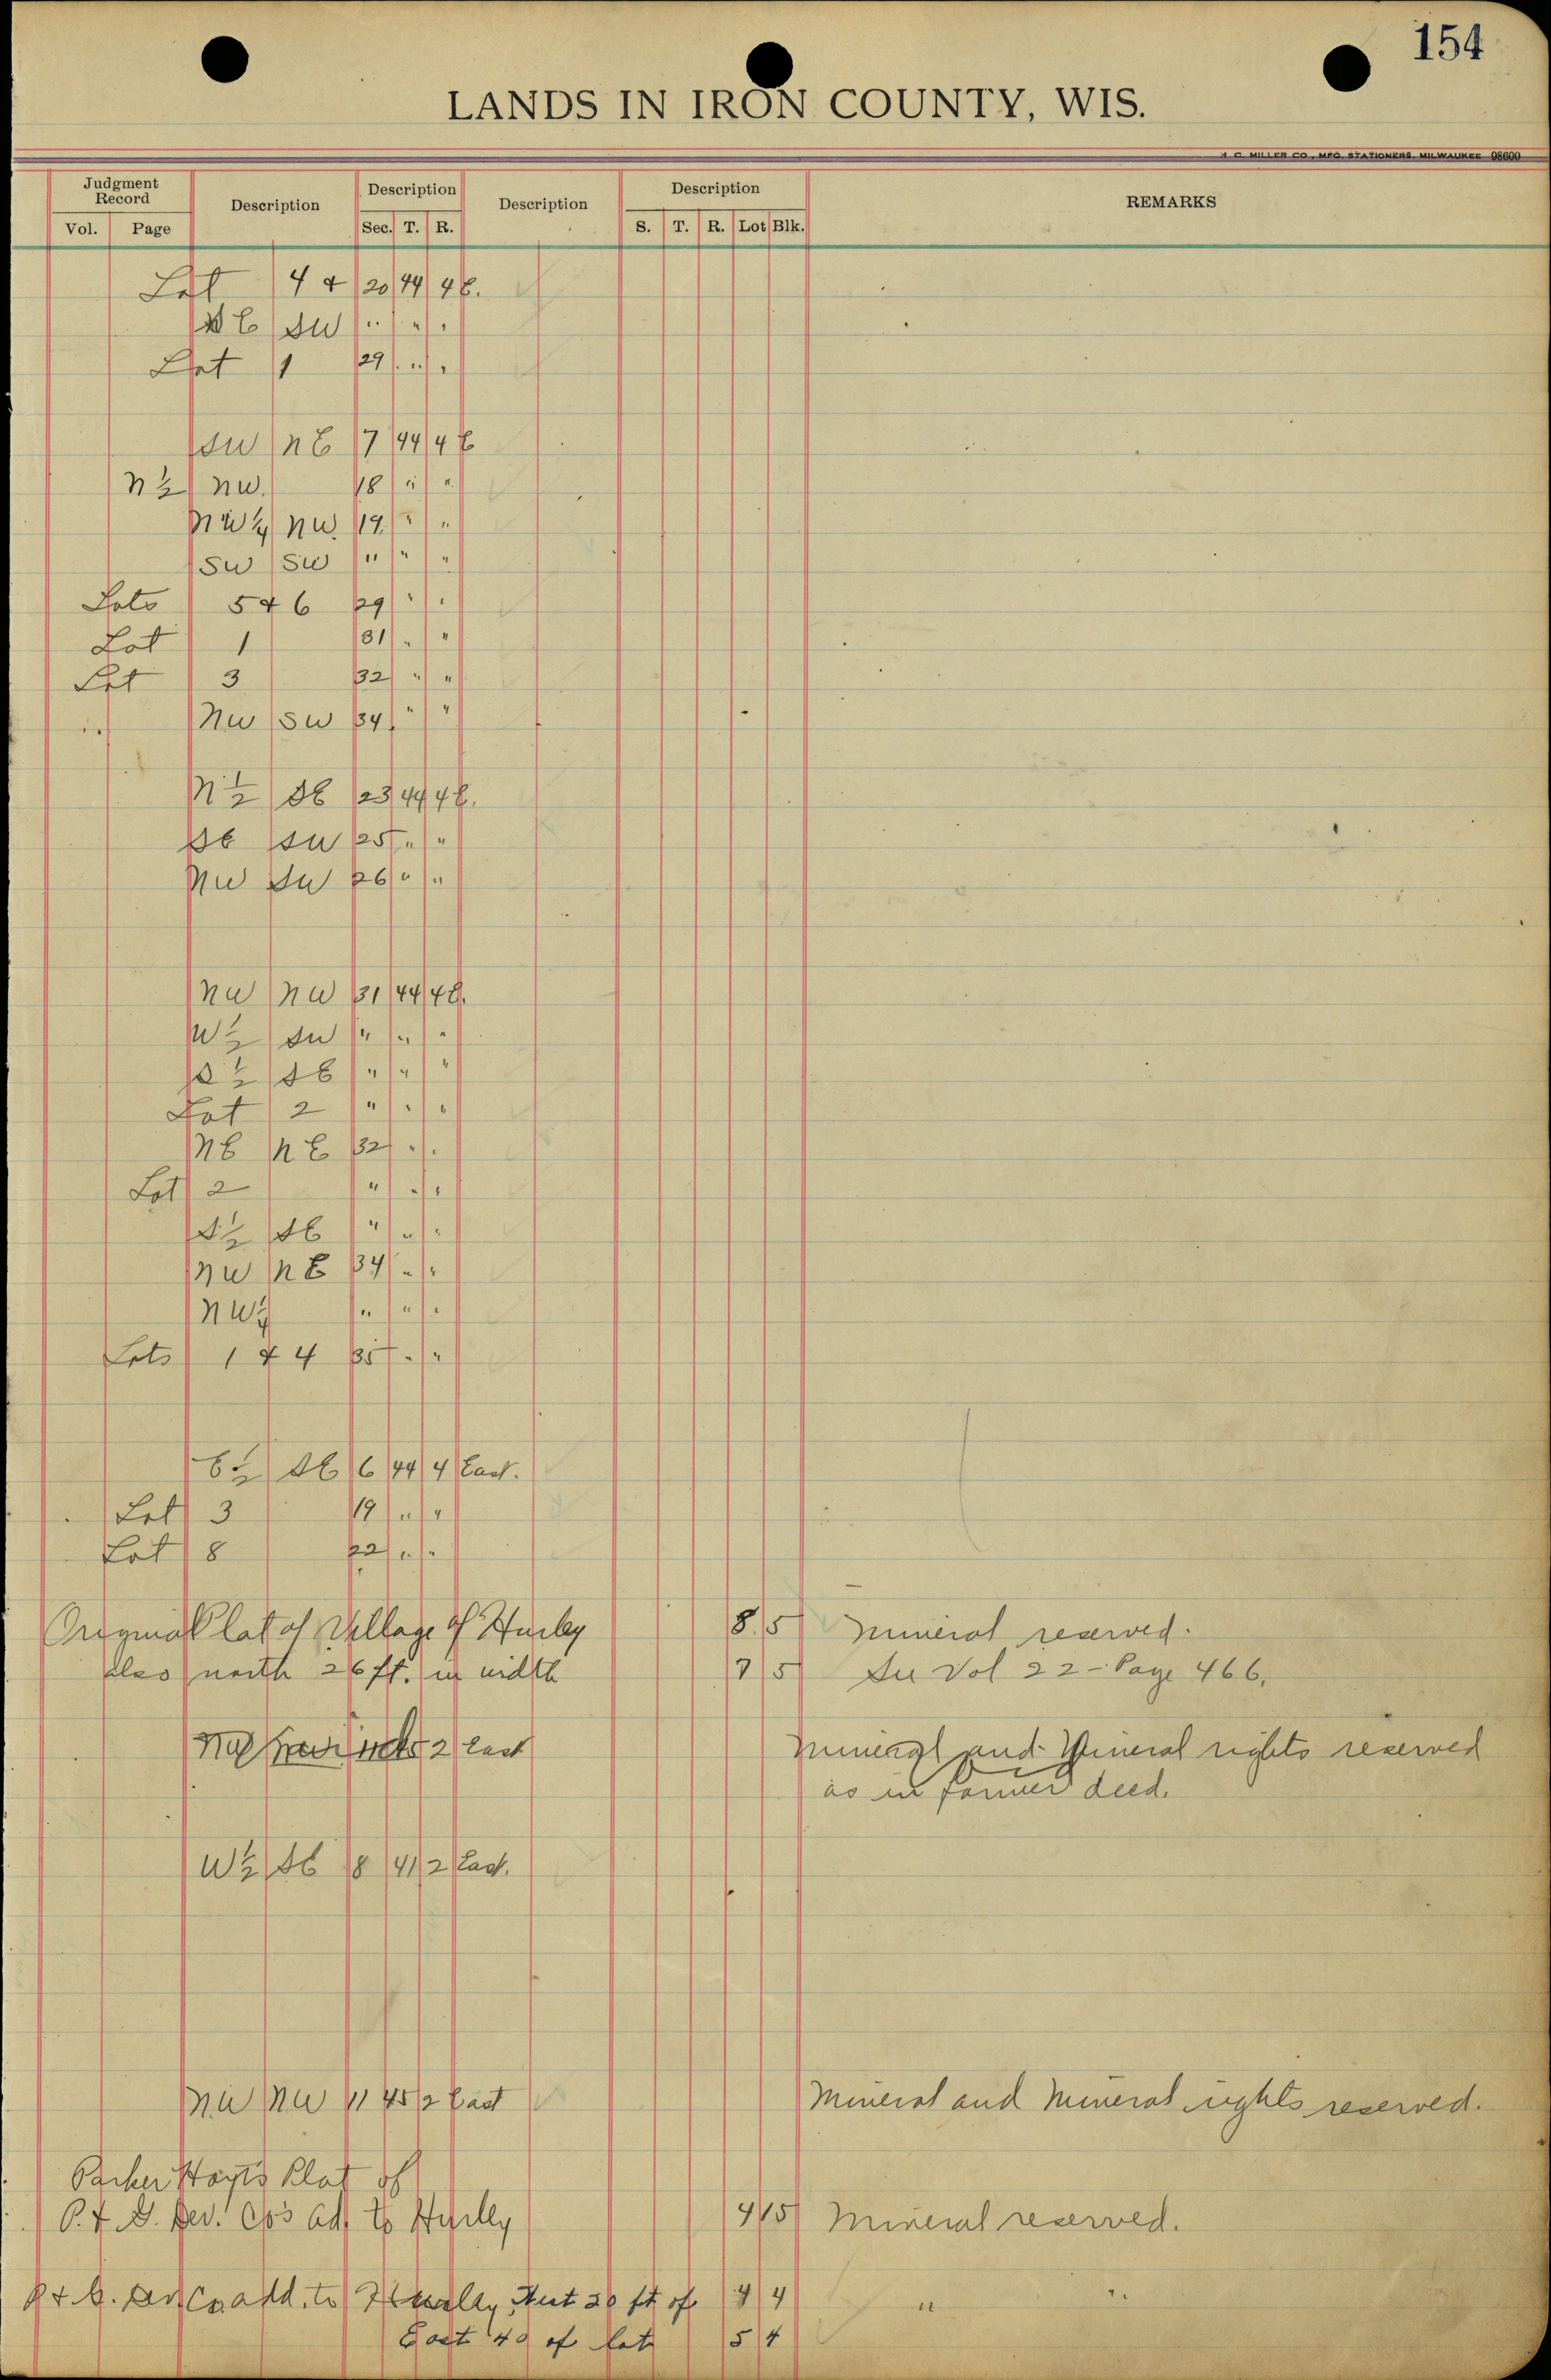 154
LANDS IN IRON COUNTY, WIS.
H. C. MILLER CO., MFG. STATIONERS, MILWAUKEE 98600
Judgment Record Description Description Description Description REMARKS
Vol. Page Sec. T. R. S. T. R. Lot Blk.
Lot 4 & 20 44 4 E.
SE SW " " "
Lot 1 29 " "
SW NE 17 44 4 E
N½ NW. 18 " "
NW¼ NW. 19 " "
SW SW " " "
Lots 5 & 6 29 " "
Lot 1 31 " "
Lot 3 32 " "
NW SW 34 " "
N½ SE 23 44 4 E.
SE SW 25 " "
NW SW 26 " "
NW NW 31 44 4 E.
W½ SW " " "
S½ SE " " "
Lot 2 " " "
NE NE 32 " "
Lot 2 " " "
S½ SE " " "
NW NE 34 " "
NW¼ " " "
Lots 1 & 4 35 " "
E½ SE 6 44 4 East.
Lot 3 19 " "
Lot 8 22 " "
Original Plat of Village of Hurley 8 5 Mineral reserved.
also north 26 ft. in width 7 5 See Vol 22 - Page 466.
2 East Mineral and Mineral rights reserved
as in former deed.
W½ SE 8 41 2 East.
NW NW 11 45 2 East Mineral and Mineral rights reserved.
Parker Hoyt's Plat of
P. & G. Dev. Co's Ad. to Hurley 4 15 Mineral reserved.
P & G. Dev Co add. to Hurley, West 20 ft of 4 4 "
East 40 of lot 5 4